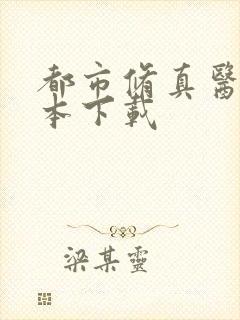 都市脩真醫
本下載
梁某靈